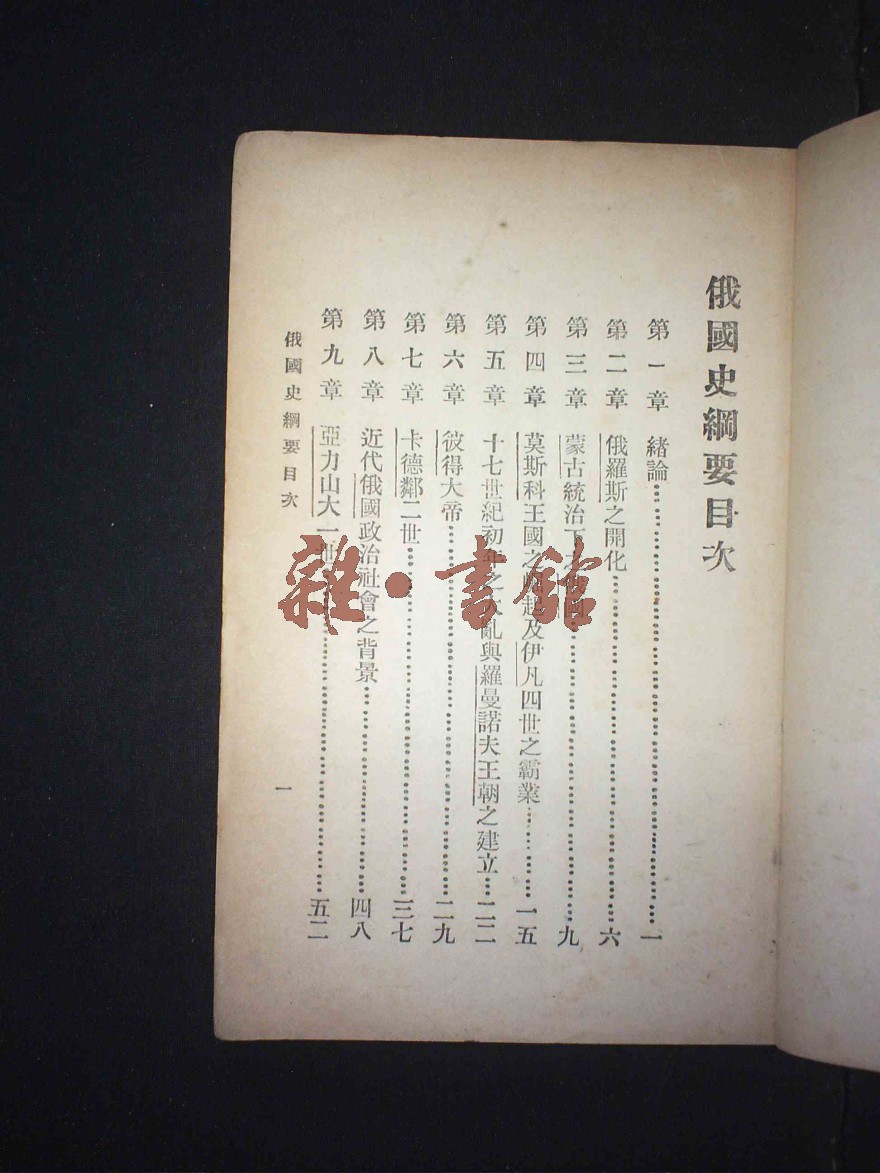 俄國史綱要目次
第一章 緒論……一
第二章 俄羅斯之開化……六
第三章 蒙古統治下之俄國……九
第四章 莫斯科王國之崛起及伊凡四世之霸業……一五
第五章 十七世紀初年之亂與羅曼諾夫王朝之建立……二二
第六章 彼得大帝……二九
第七章 卡德鄰二世……三七
第八章 近代俄國政治社會之背景……四八
第九章 亞力山大一世……五二
俄國史綱要目次
一
雜·書館